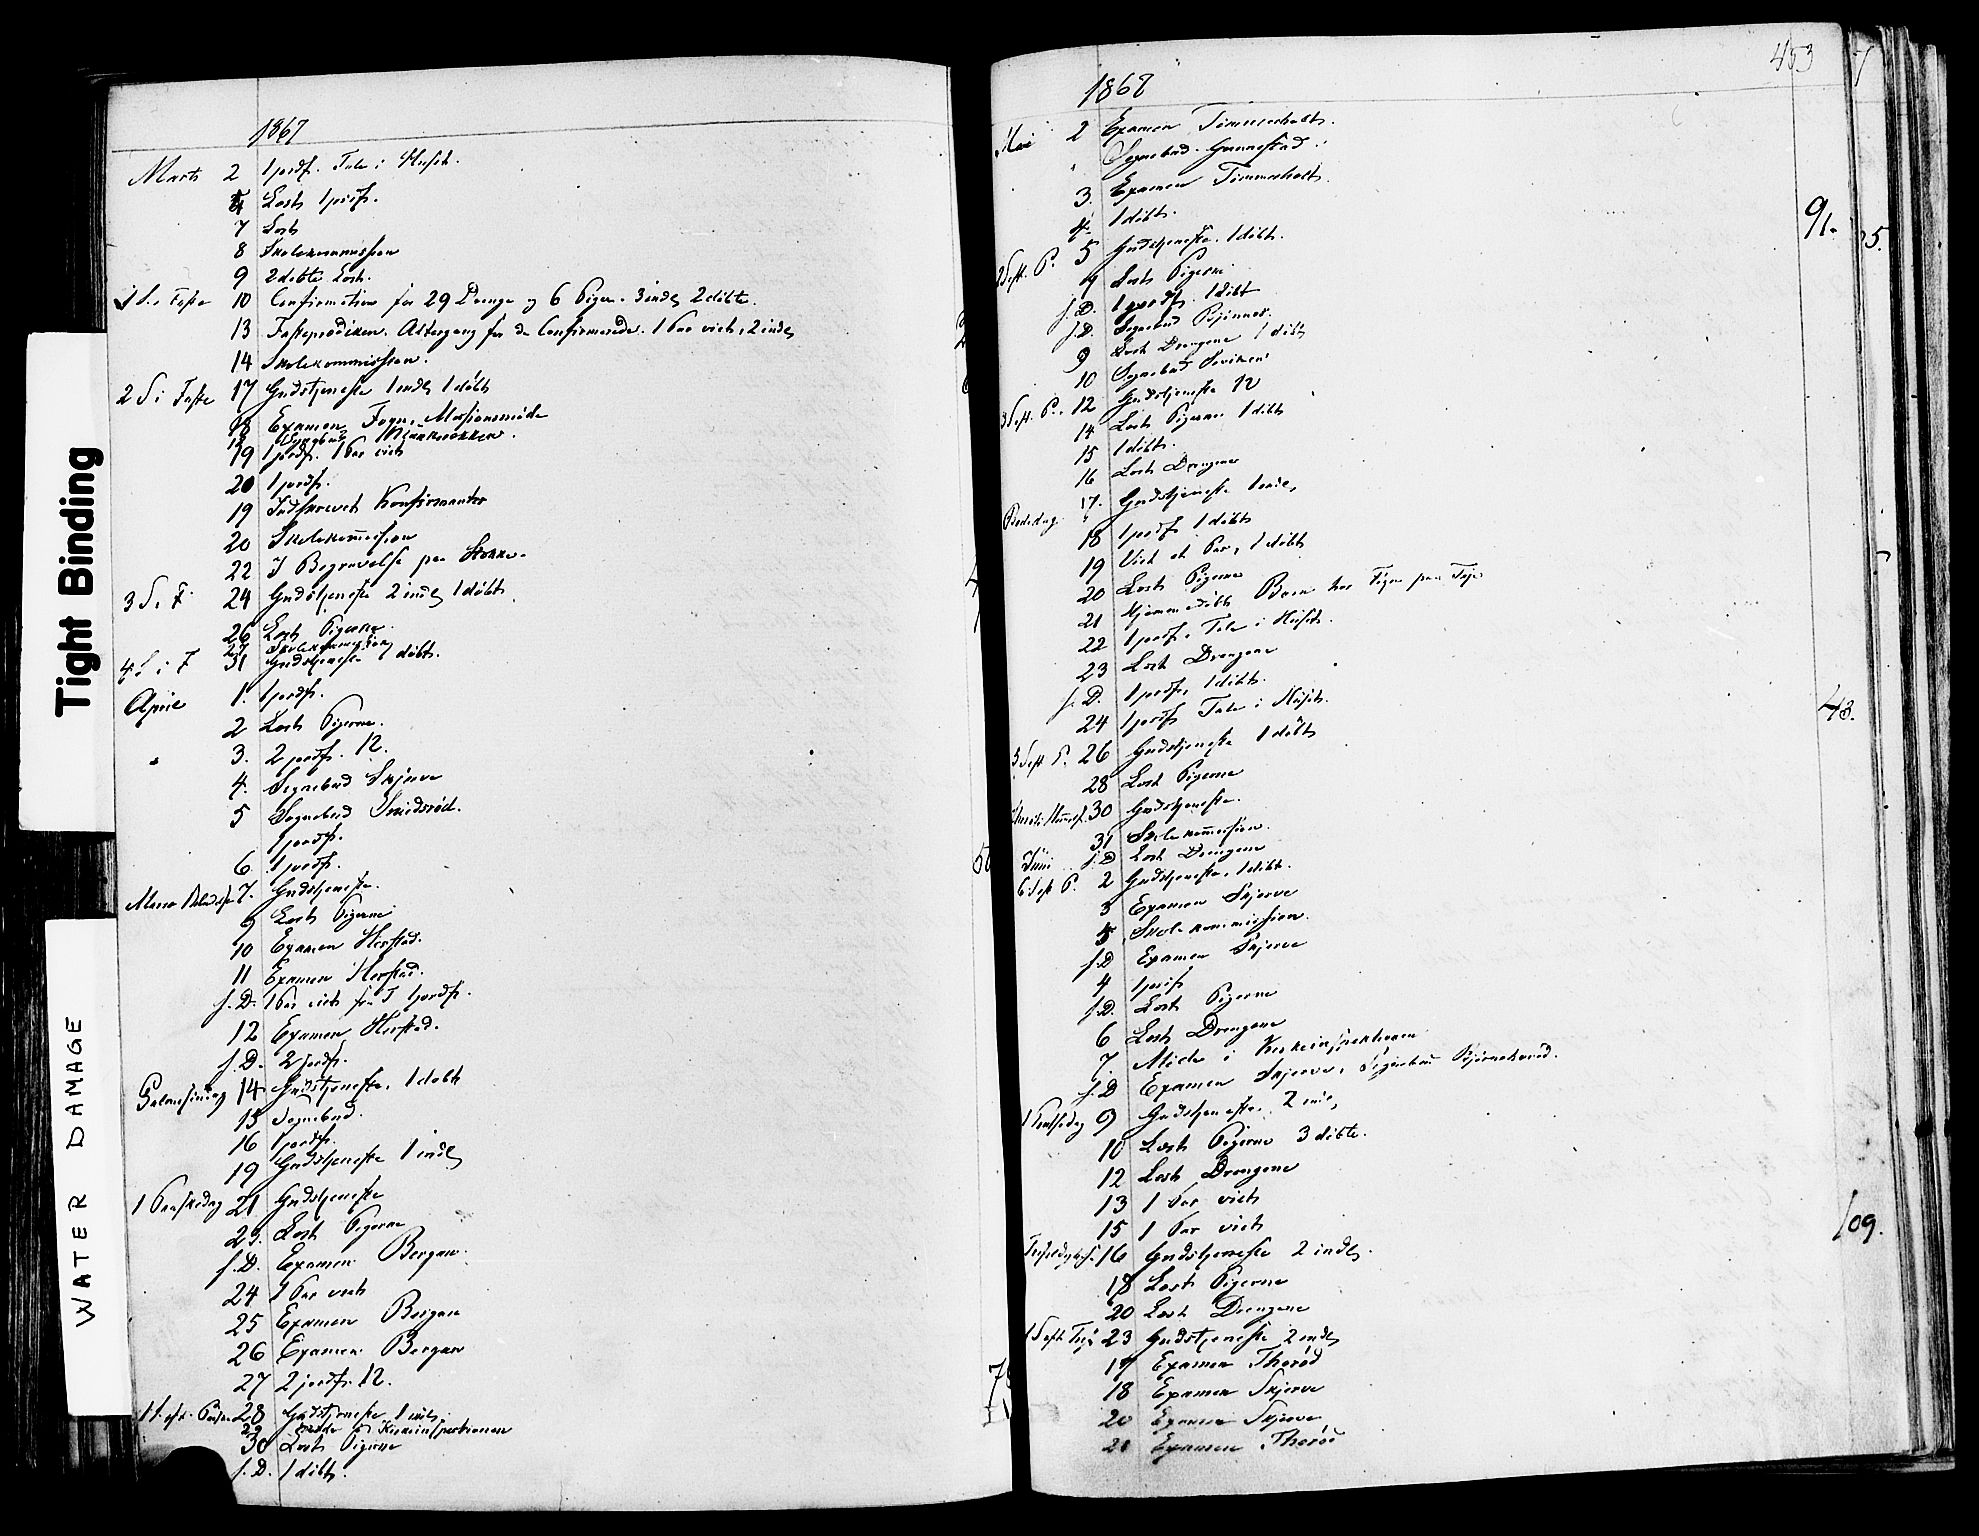 Tight Binding
WATER DAMAGE
1867
Marts 2 1 jordf. Tale i Huset.
4 Læst 1 jordf.
7 Læst
8 Skolekommission
9 2 døbte Læst.
1 S. i Faste 10 Confirmation for 29 Drenge og 6 Piger. 3 indl 2 døbte.
13 Fasteprædiken. Altergang for de Confirmerede. 1 Par viet, 2 indl
14 Skolekommission.
2 S i Faste 17 Gudstjeneste 1 indl 1 døbt
18 Examen Missionsmøde
18 Sognebud
19 1 jordf. 1 Par viet
20 1 jordf.
19 Indskrevet Konfirmanter
20 Skolekommission
22 I Begravelse paa Stokke.
3 S. i F. 24 Gudstjeneste 2 indl, 1 døbt.
26 Læst Pigerne
27 Skolekommission
4 S i F 31 Gudstjeneste 1 døbt.
April 1. 1 jordf.
2 Læst Pigerne.
3. 2 jordf. 12.
4. Sognebud Skjerve
5 Sognebud Smidsrød.
1 jordf.
6 1 jordf.
Maria 7. Gudstjeneste.
9 Læst Pigerne
10 Examen Herstad.
11 Examen Herstad.
s. D. 1 Par viet 1 jordf.
12 Examen Herstad.
s. D. 2 jordf.
Palmesøndag 14 Gudstjeneste. 1 døbt
15 Sognebud.
16 1 jordf.
19 Gudstjeneste 1 indl
1 Paaskedag 21 Gudstjeneste
23. Læst Pigerne
s. D. Examen Bergan.
24 1 Par viet
25 Examen Bergan
26 Examen Bergan
27 2 jordf. 12.
1 S. eft. Paaske 28 Gudstjeneste 1 indl,
29 Møde i Kirkeinspektionen
30 Læst Pigerne
s. D. 1 døbt.
453
1867
Mai 2 Examen Timmerholt.
Sognebud. Gunnestad.
3. Examen Timmerholt.
4. 1 døbt.
2 S eft. P. 5 Gudstjeneste. 1 døbt.
Læst Pigerne
s. D. 1 jordf. 1 døbt
s. D. Sognebud
9 Læst Drengene 1 døbt
10 Sognebud
3 S eft. P. 12 Gudstjeneste 12
14 Læst Pigerne 1 døbt
15 1 døbt.
16 Læst Drengene
Bededag. 17. Gudstjeneste 1 indl,
18 1 jordf 1 døbt
19 Viet et Par, 1 døbt
20 Læst Pigerne
21 Hjemmedøbt Barn hos
22 1 jordf. Tale i Huset.
23 Læst Drengene
s. D. 1 jordf, 1 døbt.
24 1 jordf Tale i Huset.
5 S eft P. 26 Gudstjeneste 1 døbt
28 Læst Pigerne
Christi Himmelf. 30 Gudstjeneste.
31 Skolekommission.
Juni s. D Læst Drengene
6 S eft P. 2 Gudstjeneste. 1 døbt.
3 Examen Skjerve
5 Skolekommission.
s. D Examen Skjerve
4 1 jordf
s. D. Læst Pigerne
6 Læst Drengene
7. Møde i Kirkeinspektionen
s. D Examen Skjerve, Sognebud
1 Pintsedag 9 Gudstjeneste. 2 indl,
10 Læst Pigerne 3 døbte.
12 Læst Drengene
13 1 Par viet
15 1 Par viet
16 Gudstjeneste 2 indl.
18 Læst Pigerne
20 Læst Drengene
1 S eft Tref 23 Gudstjeneste 2 indl
17 Examen Thorød
18 Examen Skjerve
20 Examen Skjerve
21 Examen Thorød
91.
43.
109.